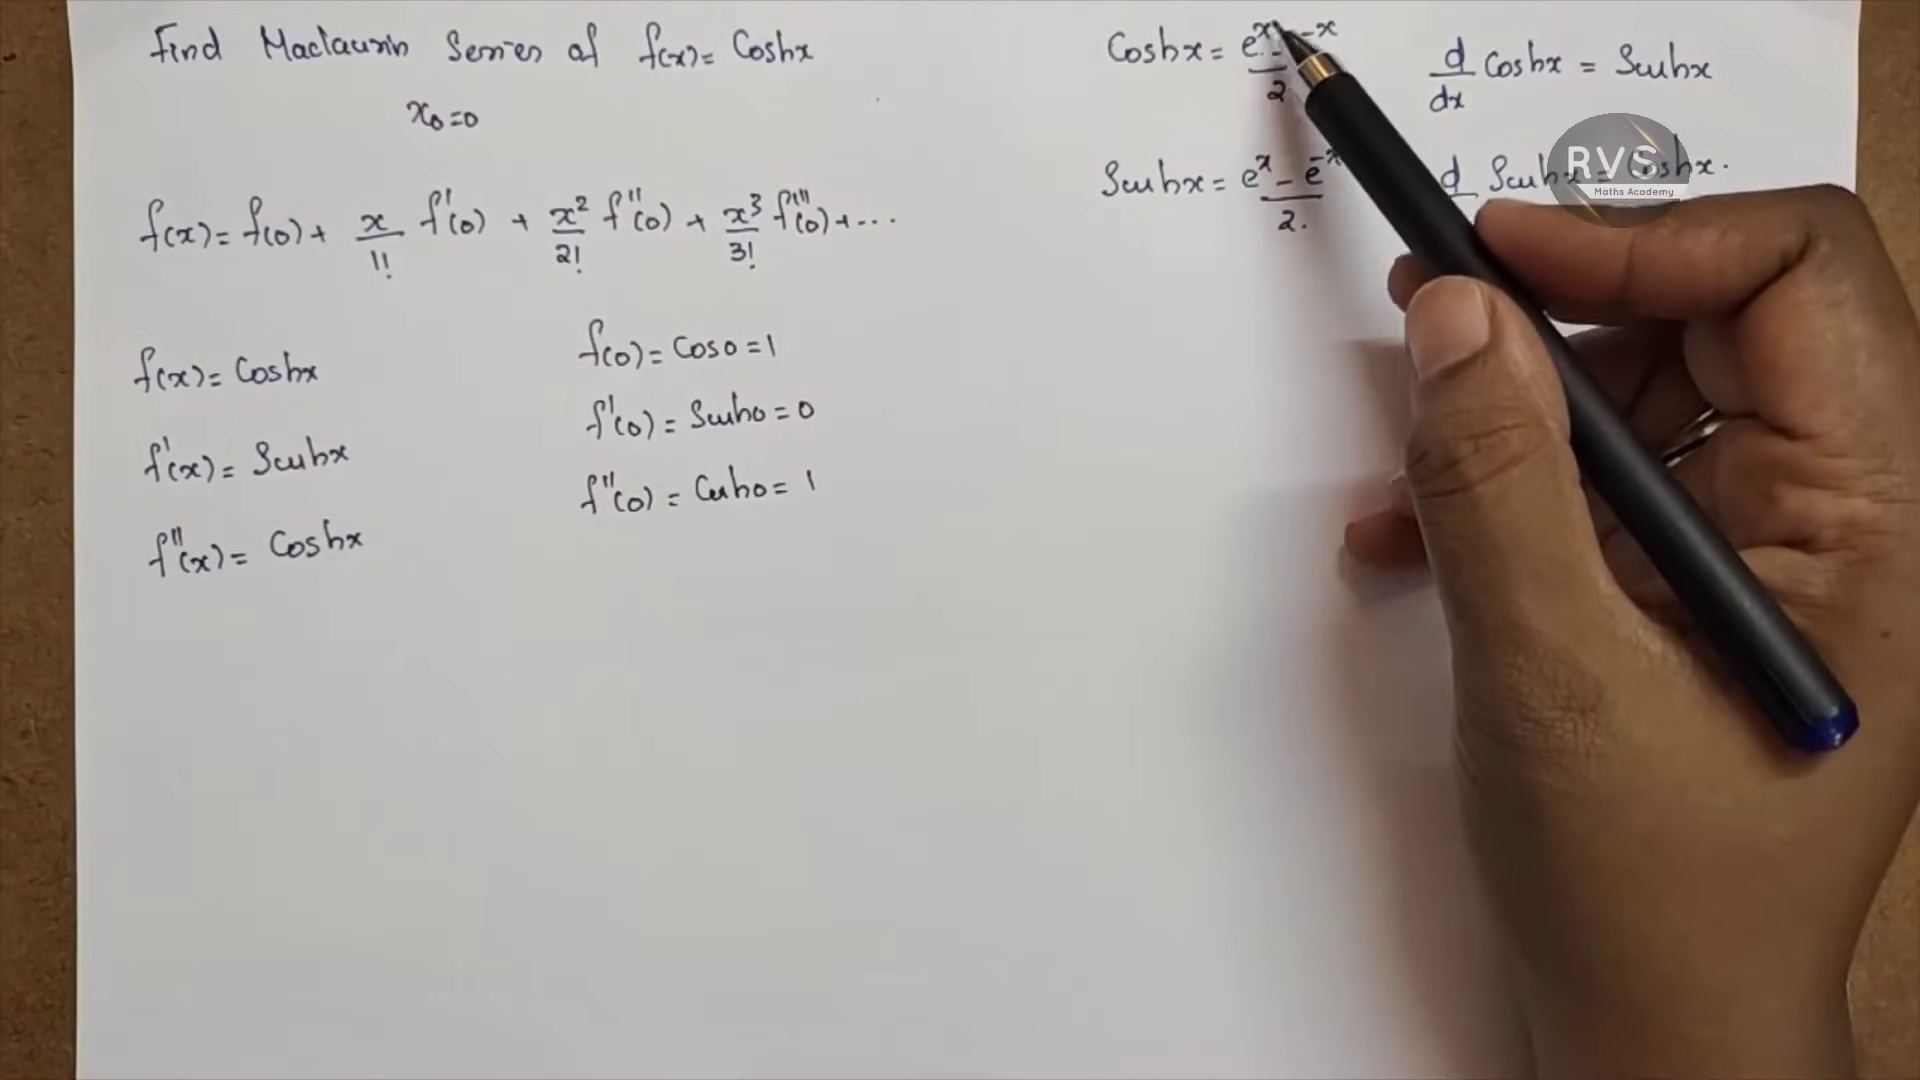 Find Maclaurin Series of f(x) = Coshx
x₀=0
f(x) = f(0) + x/1! f'(0) + x²/2! f''(0) + x³/3! f'''(0) + ...
f(x) = Coshx
f'(x) = Sinhx
f''(x) = Coshx
f(0) = Cos0 = 1
f'(0) = Sinh0 = 0
f''(0) = Cosh0 = 1
Coshx = eˣ - ⁻ˣ / 2
Sinhx = eˣ - e⁻ˣ / 2.
d/dx Coshx = Sinhx
d Sinhx = Coshx.
RVS
Maths Academy